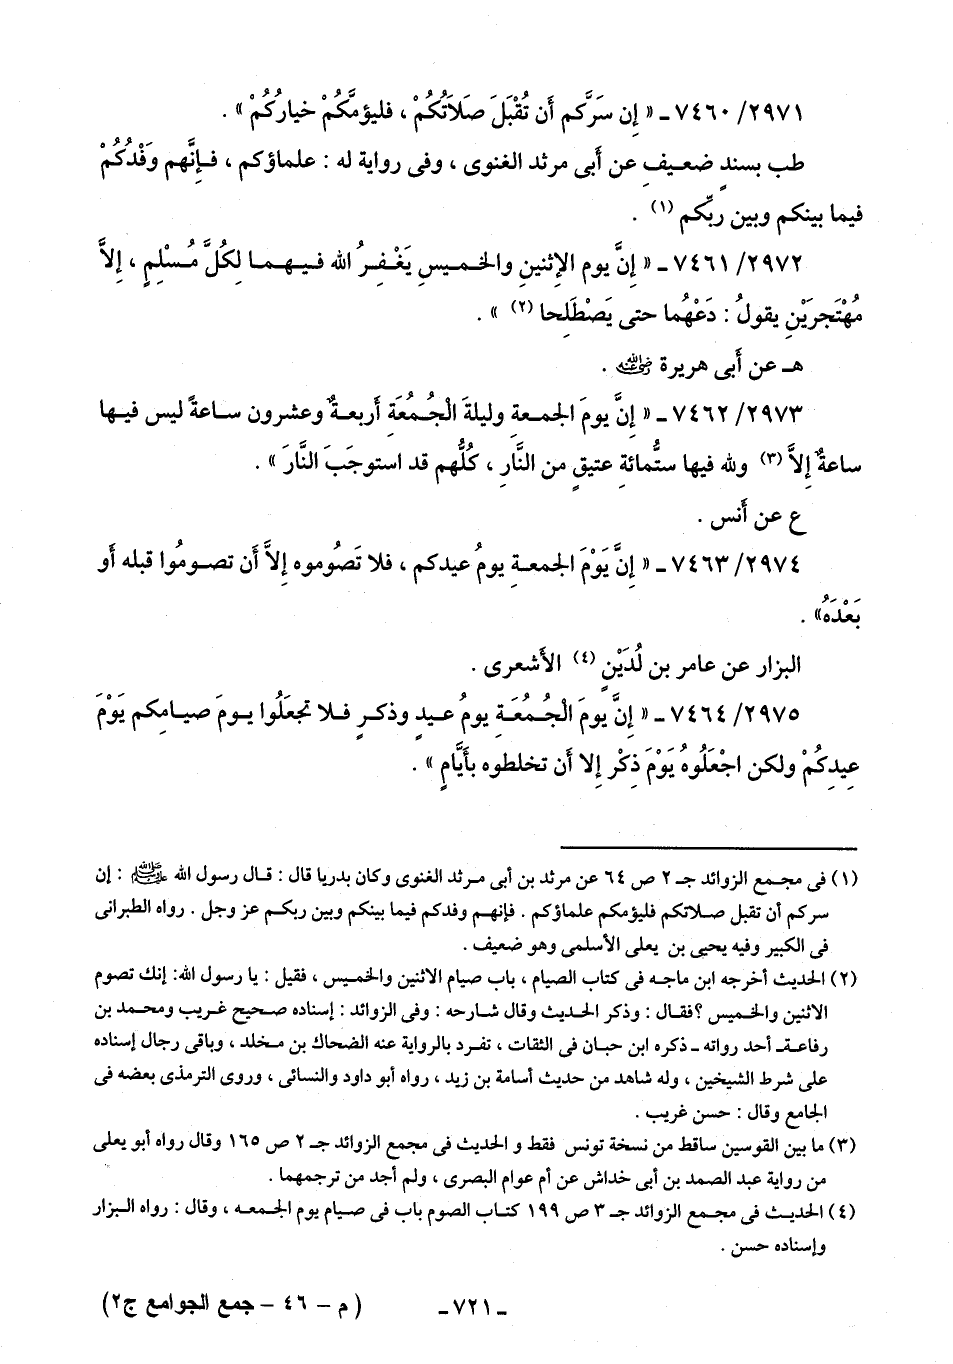 ٢٩٧١/ ٧٤٦٠ ـ « إن سَرَّكم أن تُقْبَلَ صَلَاَتُكُمْ ، فليؤمَّكُمْ خيارُكُمْ » .
طب بسندٍ ضعيفٍ عن أبى مرثد الغنوى ، وفى رواية له : علماؤكم ، فإنَّهم وَفْدُكُمْ
فيما بينكم وبين ربِّكم (١) .
٢٩٧٢/ ٧٤٦١ ـ « إنَّ يوم الإثنينِ والخميسِ يَغْفِرُ الله فيهما لِكُلَّ مُسْلِمٍ ، إلاَّ
مُهْتَجِرَيْنِ يقولُ : دَعْهُما حتى يَصْطَلِحا (٢) » .
هـ عن أبى هريرة رضي الله عنه .
٢٩٧٣/ ٧٤٦٢ ـ « إنَّ يومَ الجمعة وليلةَ الْجُمُعَةِ أربعةٌ وعشرون ساعةً ليس فيها
ساعةٌ إلاَّ (٣) ولله فيها ستُّمائةِ عتيقٍ من النَّارِ ، كُلُّهم قد استوجَبَ النَّارَ » .
ع عن أنس .
٢٩٧٤/ ٧٤٦٣ ـ « إنَّ يَوْمَ الجمعةِ يومُ عيدكم ، فلا تَصُوموه إلاَّ أن تصومُوا قبله أو
بَعْدَهُ» .
البزار عن عامر بن لُدَيْنٍ (٤) الأشعرى .
٢٩٧٥/ ٧٤٦٤ ـ « إنَّ يومَ الْجُمُعَةِ يومُ عيدٍ وذكرٍ فلا تجعَلُوا يومَ صيامكم يَوْمَ
عِيدِكُمْ ولكن اجْعَلُوهُ يَوْمَ ذِكْرٍ إلا أن تخلطوه بأيَّامٍ » .
(١) فى مجمع الزوائد جـ ٢ ص ٦٤ عن مرثد بن أبى مرثد الغنوى وكان بدريا قال : قال رسول الله ﷺ : إن
سركم أن تقبل صلاتكم فليؤمكم علماؤكم . فإنهم وفدكم فيما بينكم وبين ربكم عز وجل . رواه الطبرانى
فى الكبير وفيه يحيى بن يعلى الأسلمى وهو ضعيف .
(٢) الحديث أخرجه ابن ماجه فى كتاب الصيام ، باب صيام الاثنين والخميس ، فقيل : يا رسول الله: إنك تصوم
الاثنين والخميس ؟فقال : وذكر الحديث وقال شارحه : وفى الزوائد : إسناده صحيح غريب ومحمد بن
رفاعة ـ أحد رواته ـ ذكره ابن حبان فى الثقات ، تفرد بالرواية عنه الضحاك بن مخلد ، وباقى رجال إسناده
على شرط الشيخين ، وله شاهد من حديث أسامة بن زيد ، رواه أبو داود والنسائى ، وروى الترمذى بعضه فى
الجامع وقال : حسن غريب .
(٣) ما بين القوسين ساقط من نسخة تونس فقط و الحديث فى مجمع الزوائد جـ ٢ ص ١٦٥ وقال رواه أبو يعلى
من رواية عبد الصمد بن أبى خداش عن أم عوام البصرى ، ولم أجد من ترجمهما .
(٤) الحديث فى مجمع الزوائد جـ ٣ ص ١٩٩ كتاب الصوم باب فى صيام يوم الجمعه ، وقال : رواه البزار
وإسناده حسن .
ـ ٧٢١ ـ
( م - ٤٦ - جمع الجوامع ج٢)